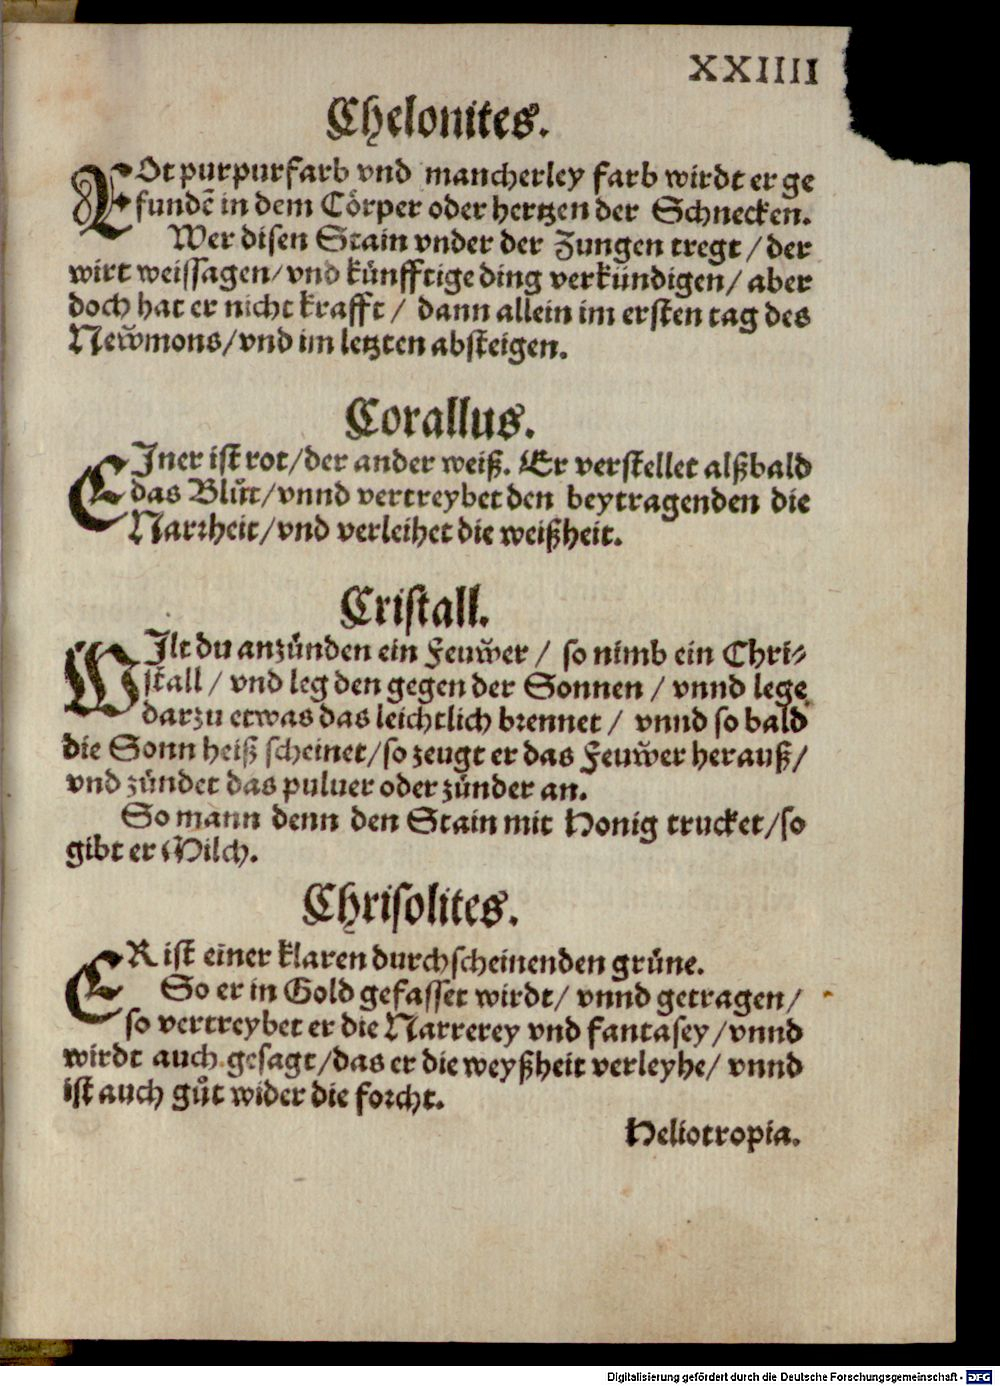 XXIIII
Chelonites.
ROt purpurfarb vnd mancherley farb wirdt er ge
fundẽ in dem Coͤrper oder hertzen der Schnecken.
Wer disen Stain vnder der Zungen tregt / der
wirt weissagen / vnd kuͤnfftige ding verkuͤndigen / aber
doch hat er nicht krafft / dann allein im ersten tag des
Neuͤwmons / vnd im letzten absteigen.
Corallus.
EIner ist rot / der ander weiß. Er verstellet alßbald
das Bluͦt / vnnd vertreybet den beytragenden die
Narrheit / vnd verleihet die weißheit.
Cristall.
WIlt du anzuͤnden ein Feuwer / so nimb ein Chri-
stall / vnd leg den gegen der Sonnen / vnnd lege
darzu etwas das leichtlich brennet / vnnd so bald
die Sonn heiß scheinet / so zeugt er das Feuwer herauß /
vnd zuͤndet das puluer oder zuͤnder an.
So mann denn den Stain mit Honig trucket / so
gibt er Milch.
Chrisolites.
ER ist einer klaren durchscheinenden gruͤne.
So er in Gold gefasset wirdt / vnnd getragen /
so vertreybet er die Narrerey vnd fantasey / vnnd
wirdt auch gesagt / das er die weyßheit verleyhe / vnnd
ist auch guͦt wider die forcht.
Heliotropia.
Digitalisierung gefördert durch die Deutsche Forschungsgemeinschaft - DFG